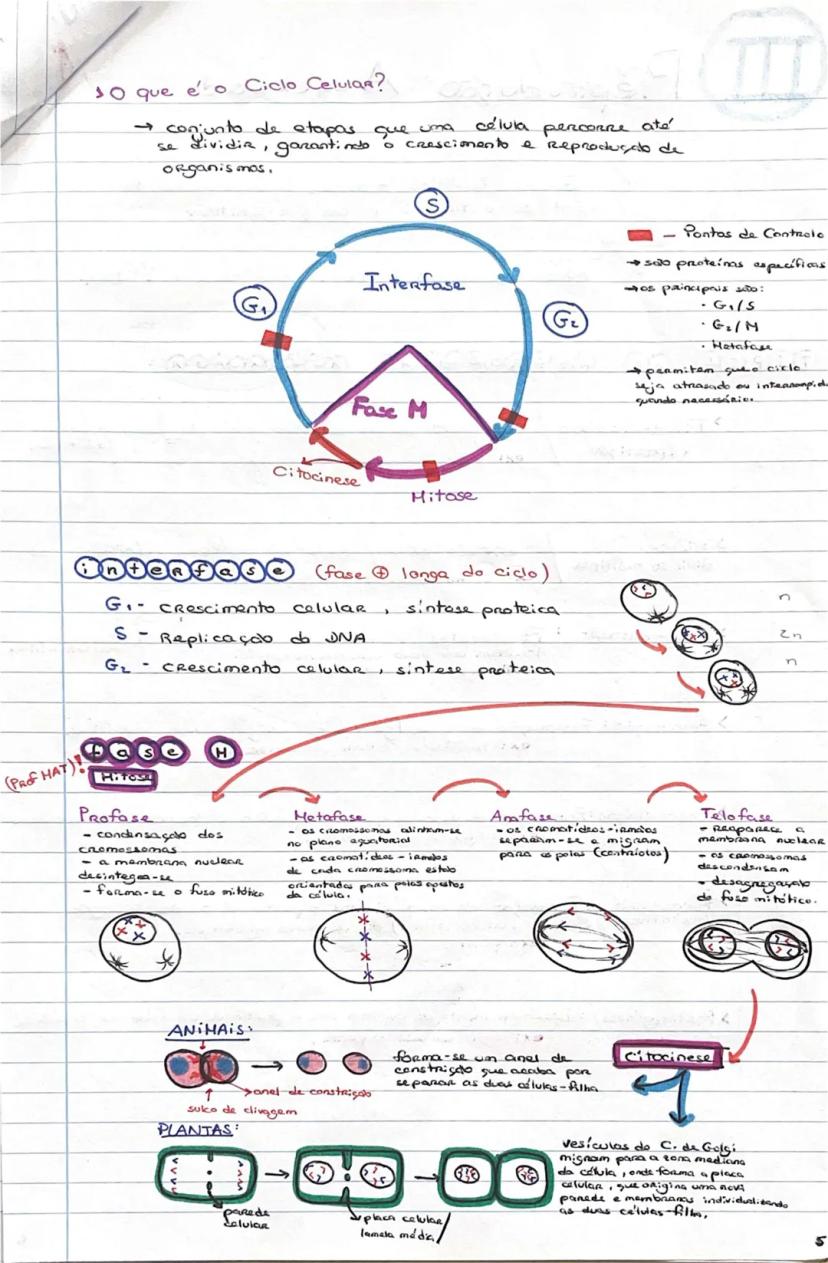 O que é o Ciclo Celular?
→ conjunto de etapas que uma célula percorre até
se dividir, garantindo o crescimento e reprodução de
organismos.
S
Interfase
G₁
G₂
Fase M
Citocinese
Mitose
- Pontos de Controlo
→ são proteínas específicas
→ os principais são:
• G₁/S
• G₂/M
• Metafase
→ permitem que o ciclo
seja atrasado ou interrompid
quando necessário.
interfase (fase ⊕ longa do ciclo)
G₁ - crescimento celular, síntese proteica
S - Replicação do DNA
G₂ - crescimento celular, síntese proteica
n
2n
n
fase M
(Prof MAT)!
Mitose
Profase
- condensação dos
cromossomas
- a membrana nuclear
desintegra-se
- forma-se o fuso mitótico
Metafase
- os cromossomas alinham-se
no plano equatorial
- os cromatídeos-irmãos
de cada cromossoma estão
orientados para polos opostos
da célula.
Anafase
- os cromatídeos-irmãos
separam-se e migram
para os polos (centríolos)
Telofase
- Reaparece a
membrana nuclear
- os cromossomas
descondensam
- desagregação
do fuso mitótico.
ANIMAIS:
anel de constrição
sulco de clivagem
forma-se um anel de
constrição que acaba por
separar as duas células-filha
Citocinese
PLANTAS:
parede
celular
placa celular/
lamela média/
vesículas do C. de Golgi
migram para a zona mediana
da célula, onde forma a placa
celular, que origina uma nova
parede e membranas individualizando
as duas células-filha.
5